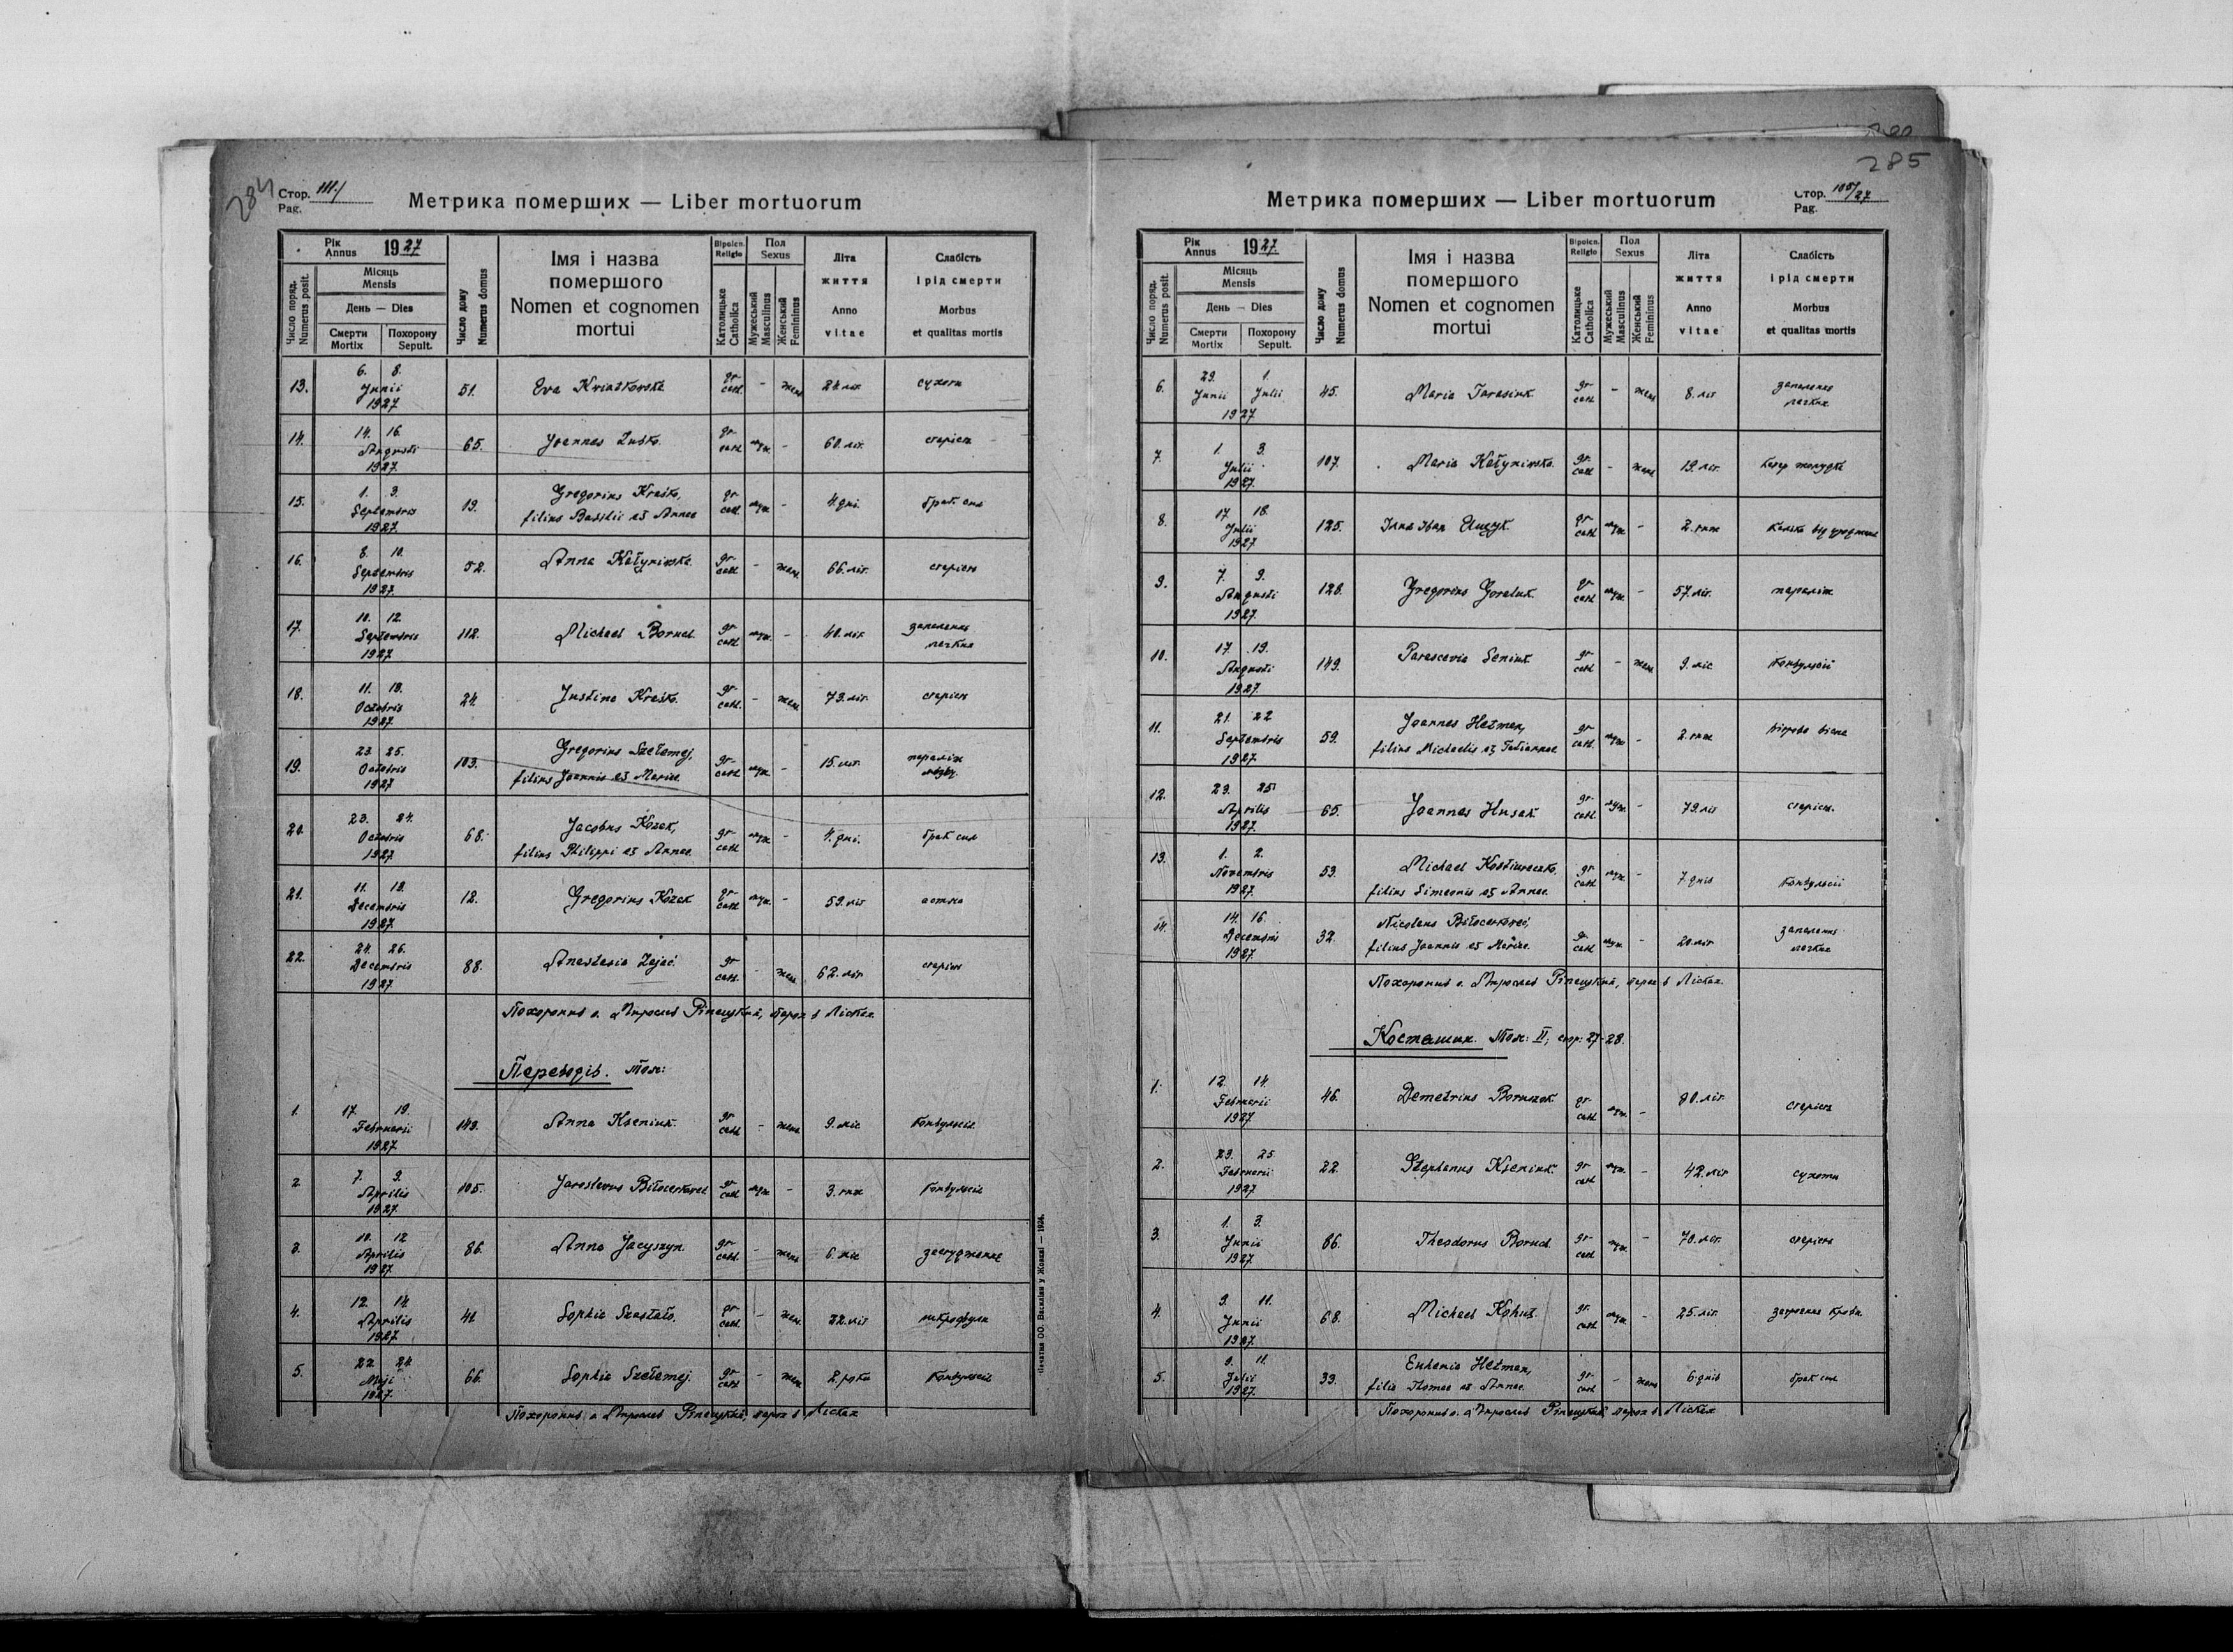 284
Стор. 111./
Pag.
Метрика померших — Liber mortuorum
Рік
Annus
1927
Місяць
Mensis
День — Dies
Смерти
Mortix
Похорону
Sepult.
Число поряд.
Numerus posit.
Число дому
Numerus domus
Імя і назва
помершого
Nomen et cognomen
mortui
Віроісп.
Religio
Католицьке
Catholica
Пол
Sexus
Мужеський
Masculinus
Женський
Femininus
Літа
життя
Anno
vitae
Слабість
і рід смерти
Morbus
et qualitas mortis
13. 6. 8. Junii 1927 51. Eva Kwiatkowska gr. cath. - жен. 24 літ сухоти
14. 14. 16. Augusti 1927. 65. Joannes Zuśko. gr. cath. муж. - 60. літ. старість
15. 1. 3. Septembris 1927. 19. Gregorius Kraśko,
filius Basilii et Annae gr. cath. муж. - 4. дні. брак сил
16. 8. 10. Septembris 1927. 52. Anna Kałyniwska. gr. cath. - жен. 66. літ. старість
17. 10. 12 Septembris 1927. 112. Michael Boruch. gr. cath. муж. - 40. літ запалення
легких
18. 11. 13. Octobris 1927. 24. Justina Kraśko. gr. cath. - жен. 79. літ. старість
19. 23. 25. Octobris 1927 103. Gregorius Szełemej,
filius Joannis et Mariae. gr. cath. муж. - 15. літ. параліж
мозку.
20. 23. 24. Octobris 1927 68. Jacobus Kozak,
filius Philippi et Annae. gr. cath. муж. - 4. дні. брак сил
21. 11. 13. Decembris 1927. 12. Gregorius Kozak gr. cath. муж. - 59. літ астма
22. 24. 26. Decembris 1927 88. Anastasia Zając. gr. cath. - жен. 62. літ. старість
Похоронив о. Мирослав Ріпецький, парох в Лісках.
Переводів. Том:
1. 17. 19. Februarii 1927. 149. Anna Kseniuk. gr. cath. - жен. 9. міс конвульсії.
2. 7. 9. Aprilis 1927. 105. Jaroslaus Biłocerkowec gr. cath. муж. - 3. роки конвульсії
3. 10. 12 Aprilis 1927. 86. Anna Jacyszyn. gr. cath. - жен. 6. міс застудження
4. 12. 14. Aprilis 1927. 41. Sophia Szostało. gr. cath. - жен. 22. літ шкрофули
5. 22. 24. Maji 1927. 66. Sophia Szełemej. gr. cath. - жен 2. роки конвульсії
Похоронив о. Мирослав Ріпецький, парох в Лісках
Печатня ОО. Василіян у Жовкві — 1924.
285
Стор. 105/27
Pag.
Метрика померших — Liber mortuorum
Рік
Annus
1927.
Місяць
Mensis
День — Dies
Смерти
Mortix
Похорону
Sepult.
Число поряд.
Numerus posit.
Число дому
Numerus domus
Імя і назва
помершого
Nomen et cognomen
mortui
Віроісп.
Religio
Католицьке
Catholica
Пол
Sexus
Мужеський
Masculinus
Женський
Femininus
Літа
життя
Anno
vitae
Слабість
і рід смерти
Morbus
et qualitas mortis
6. 29. Junii 1. Julii 1927 45. Maria Tarasiuk. gr. cath. - жен 8. літ запалення
легких
7. 1. 3. Julii 1927. 107. Maria Kałyniwska. gr. cath. - жен. 19. літ. катар жолудка
8. 17. 18. Julii 1927 125. gr. cath. муж. - 2. роки каліка від уродження
9. 7. 9. Augusti 1927. 128. Gregorius Goraluk. gr. cath. муж. - 57. літ. параліж
10. 17. 19. Augusti 1927. 149. Parascevia Seniuk. gr. cath. - жен 9. міс конвульсії
11. 21. 22 Septembris 1927 59. Joannes Hetman,
filius Michaelis et Tatiannae gr. cath. муж. - 2. роки
12. 23. 25. Aprilis 1927. 65. Joannes Husak. gr. cath. муж. - 79. літ старість.
13. 1. 2. Novembris 1927. 53. Michael
filius Simeonis et Annae. gr. cath. муж. - 7. днів конвульсії
14. 14. 16. Decembris 1927 32. Nicolaus Biłocerkowec,
filius Joannis et Mariae. gr. cath. муж. - 20. літ запалення
легких
Похоронив о. Мирослав Ріпецький, парох в Лісках.
Косташин. Том: II, стор: 27-28.
1. 12. 14. Februarii 1927. 46. Demetrius Boruszok. gr. cath. муж. - 80. літ. старість
2. 23. 25 Februarii 1927. 22. Stephanus Kseniuk. gr. cath. муж. - 42. літ сухоти
3. 1. 3. Junii 1927. 86. Theodorus Boruch. gr. cath. муж. - 70. літ. старість
4. 9. 11. Junii 1927. 68. Michael Kohut. gr. cath. муж. - 25. літ. затроєння крови.
5. 9. 11. Julii 1927. 33. Euhenia Hetman,
filia Thomae et Annae. gr. cath. - жен 6. днів брак сил
Похоронив о. Мирослав Ріпецький, парох в Лісках